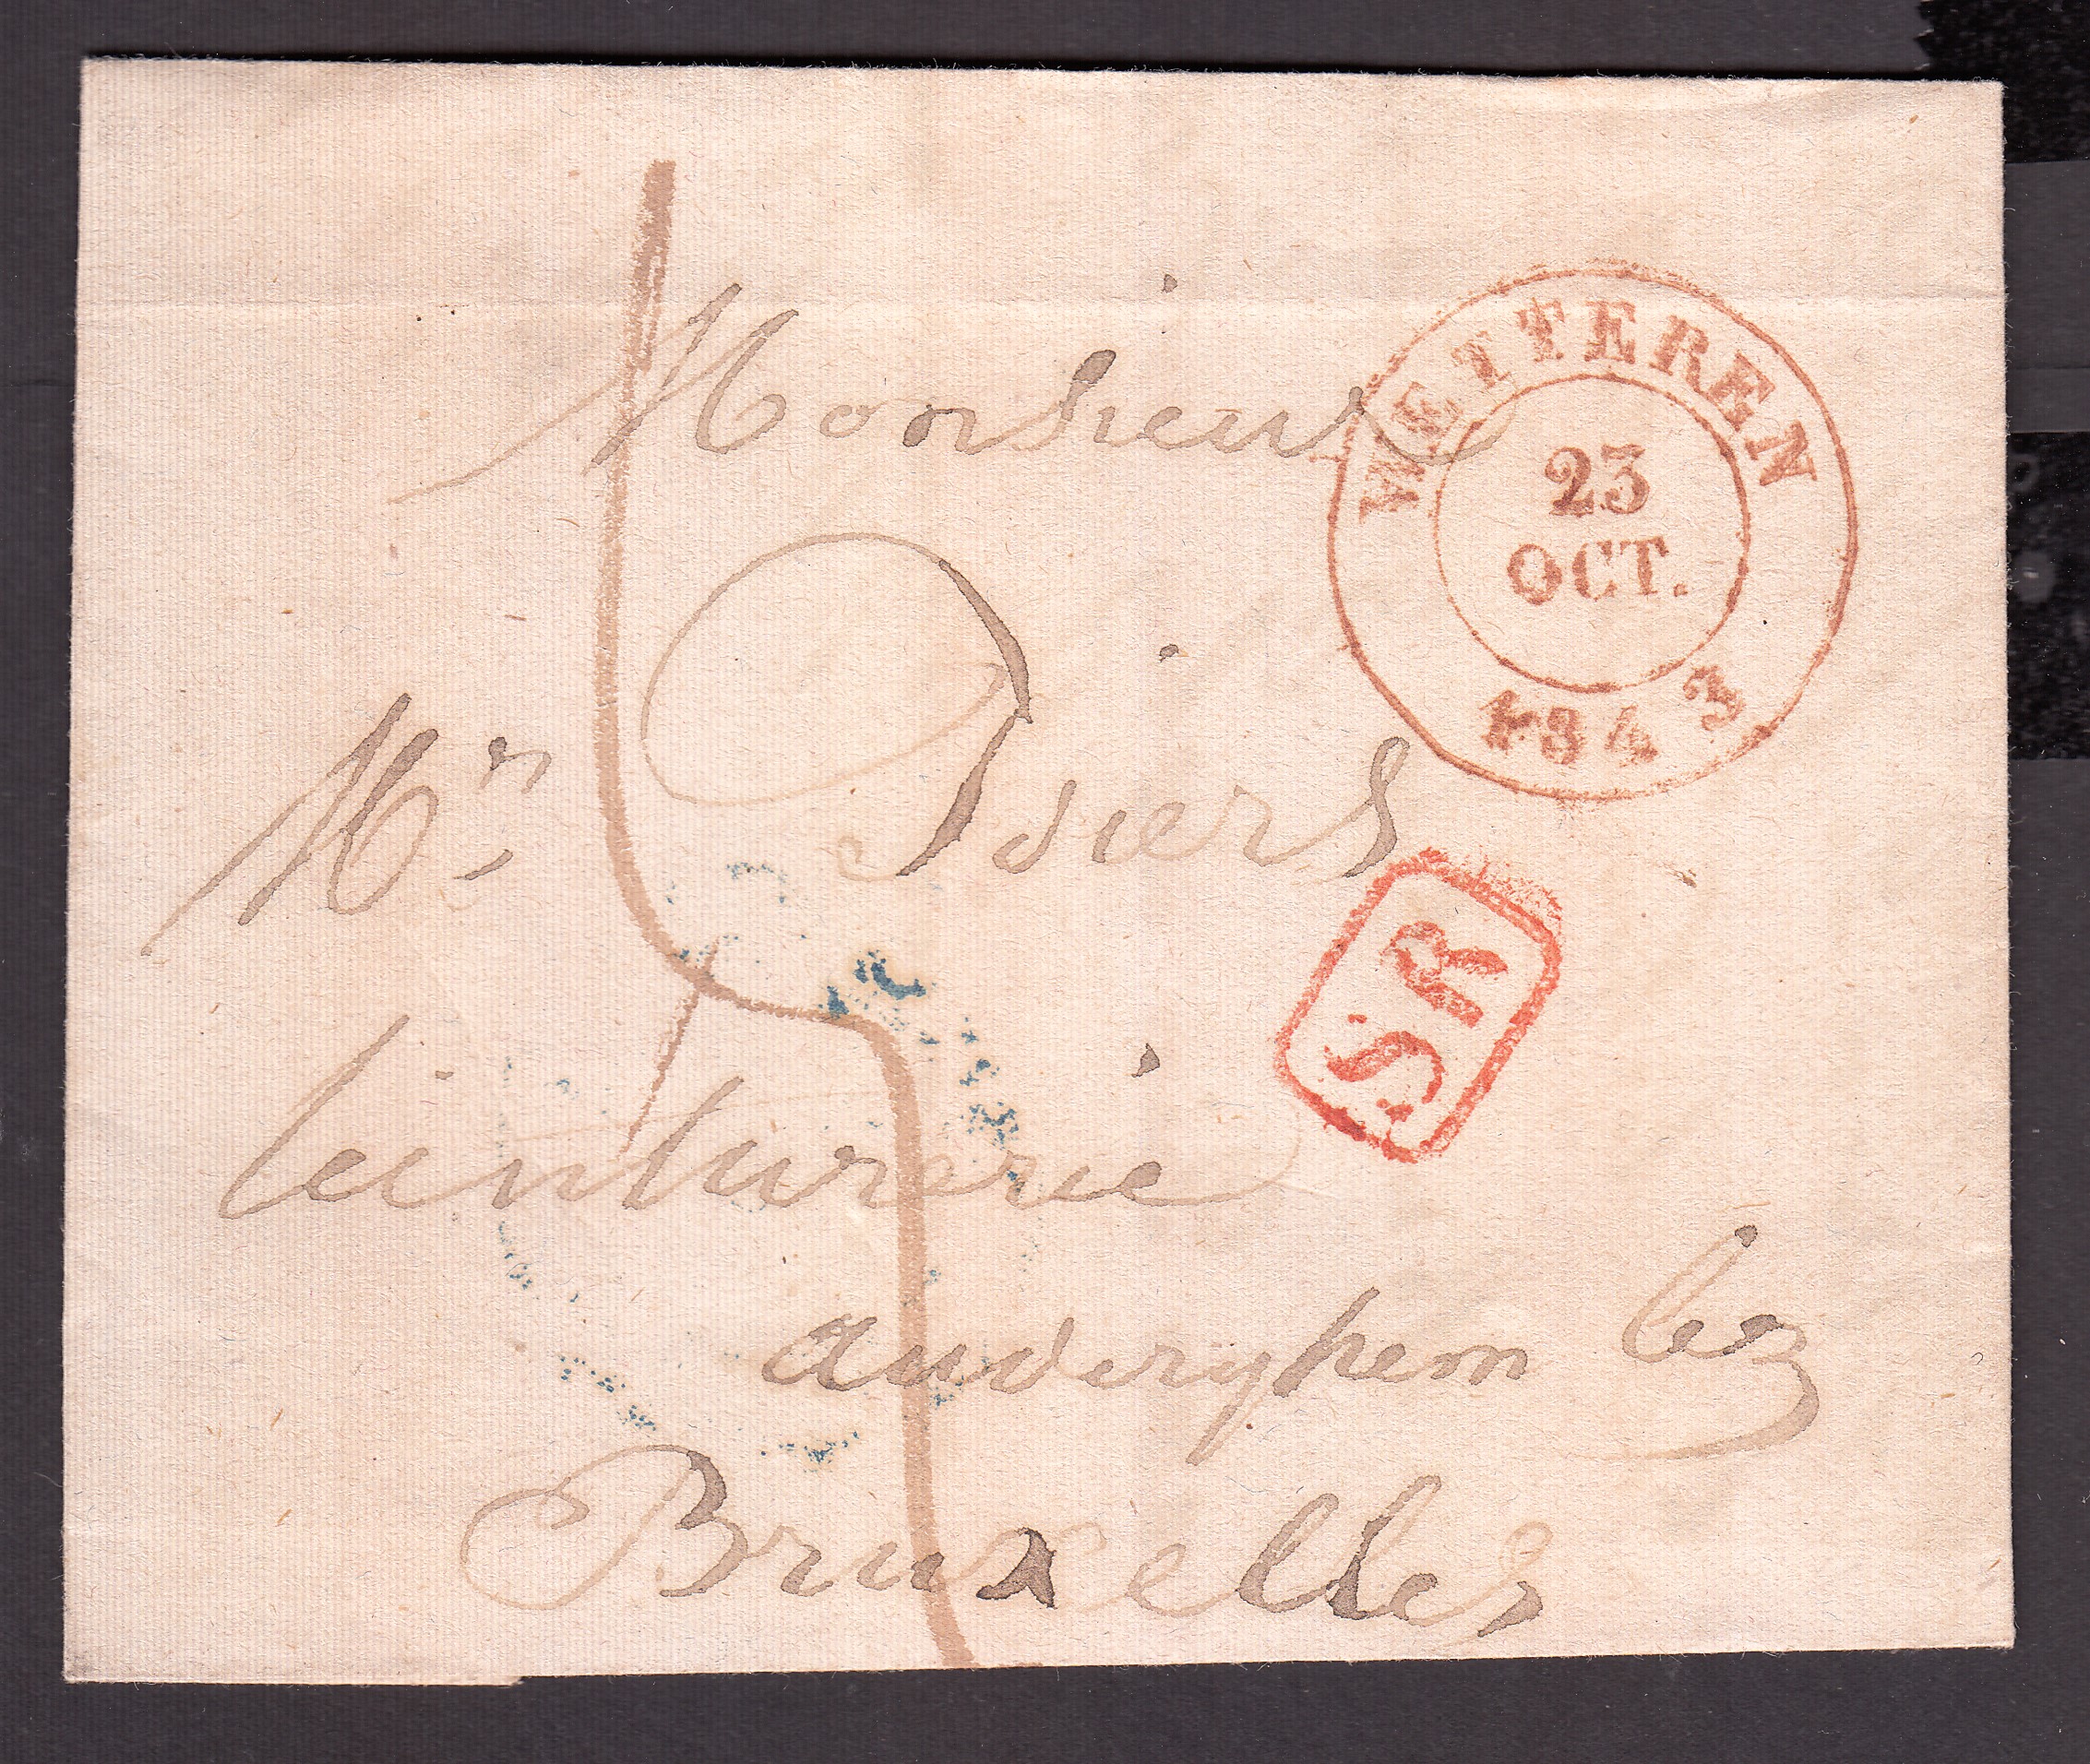 Monsieur
WETTEREN
23
OCT.
1843
Mr
SR
teinturerie
auderghem lez
Bruxelles